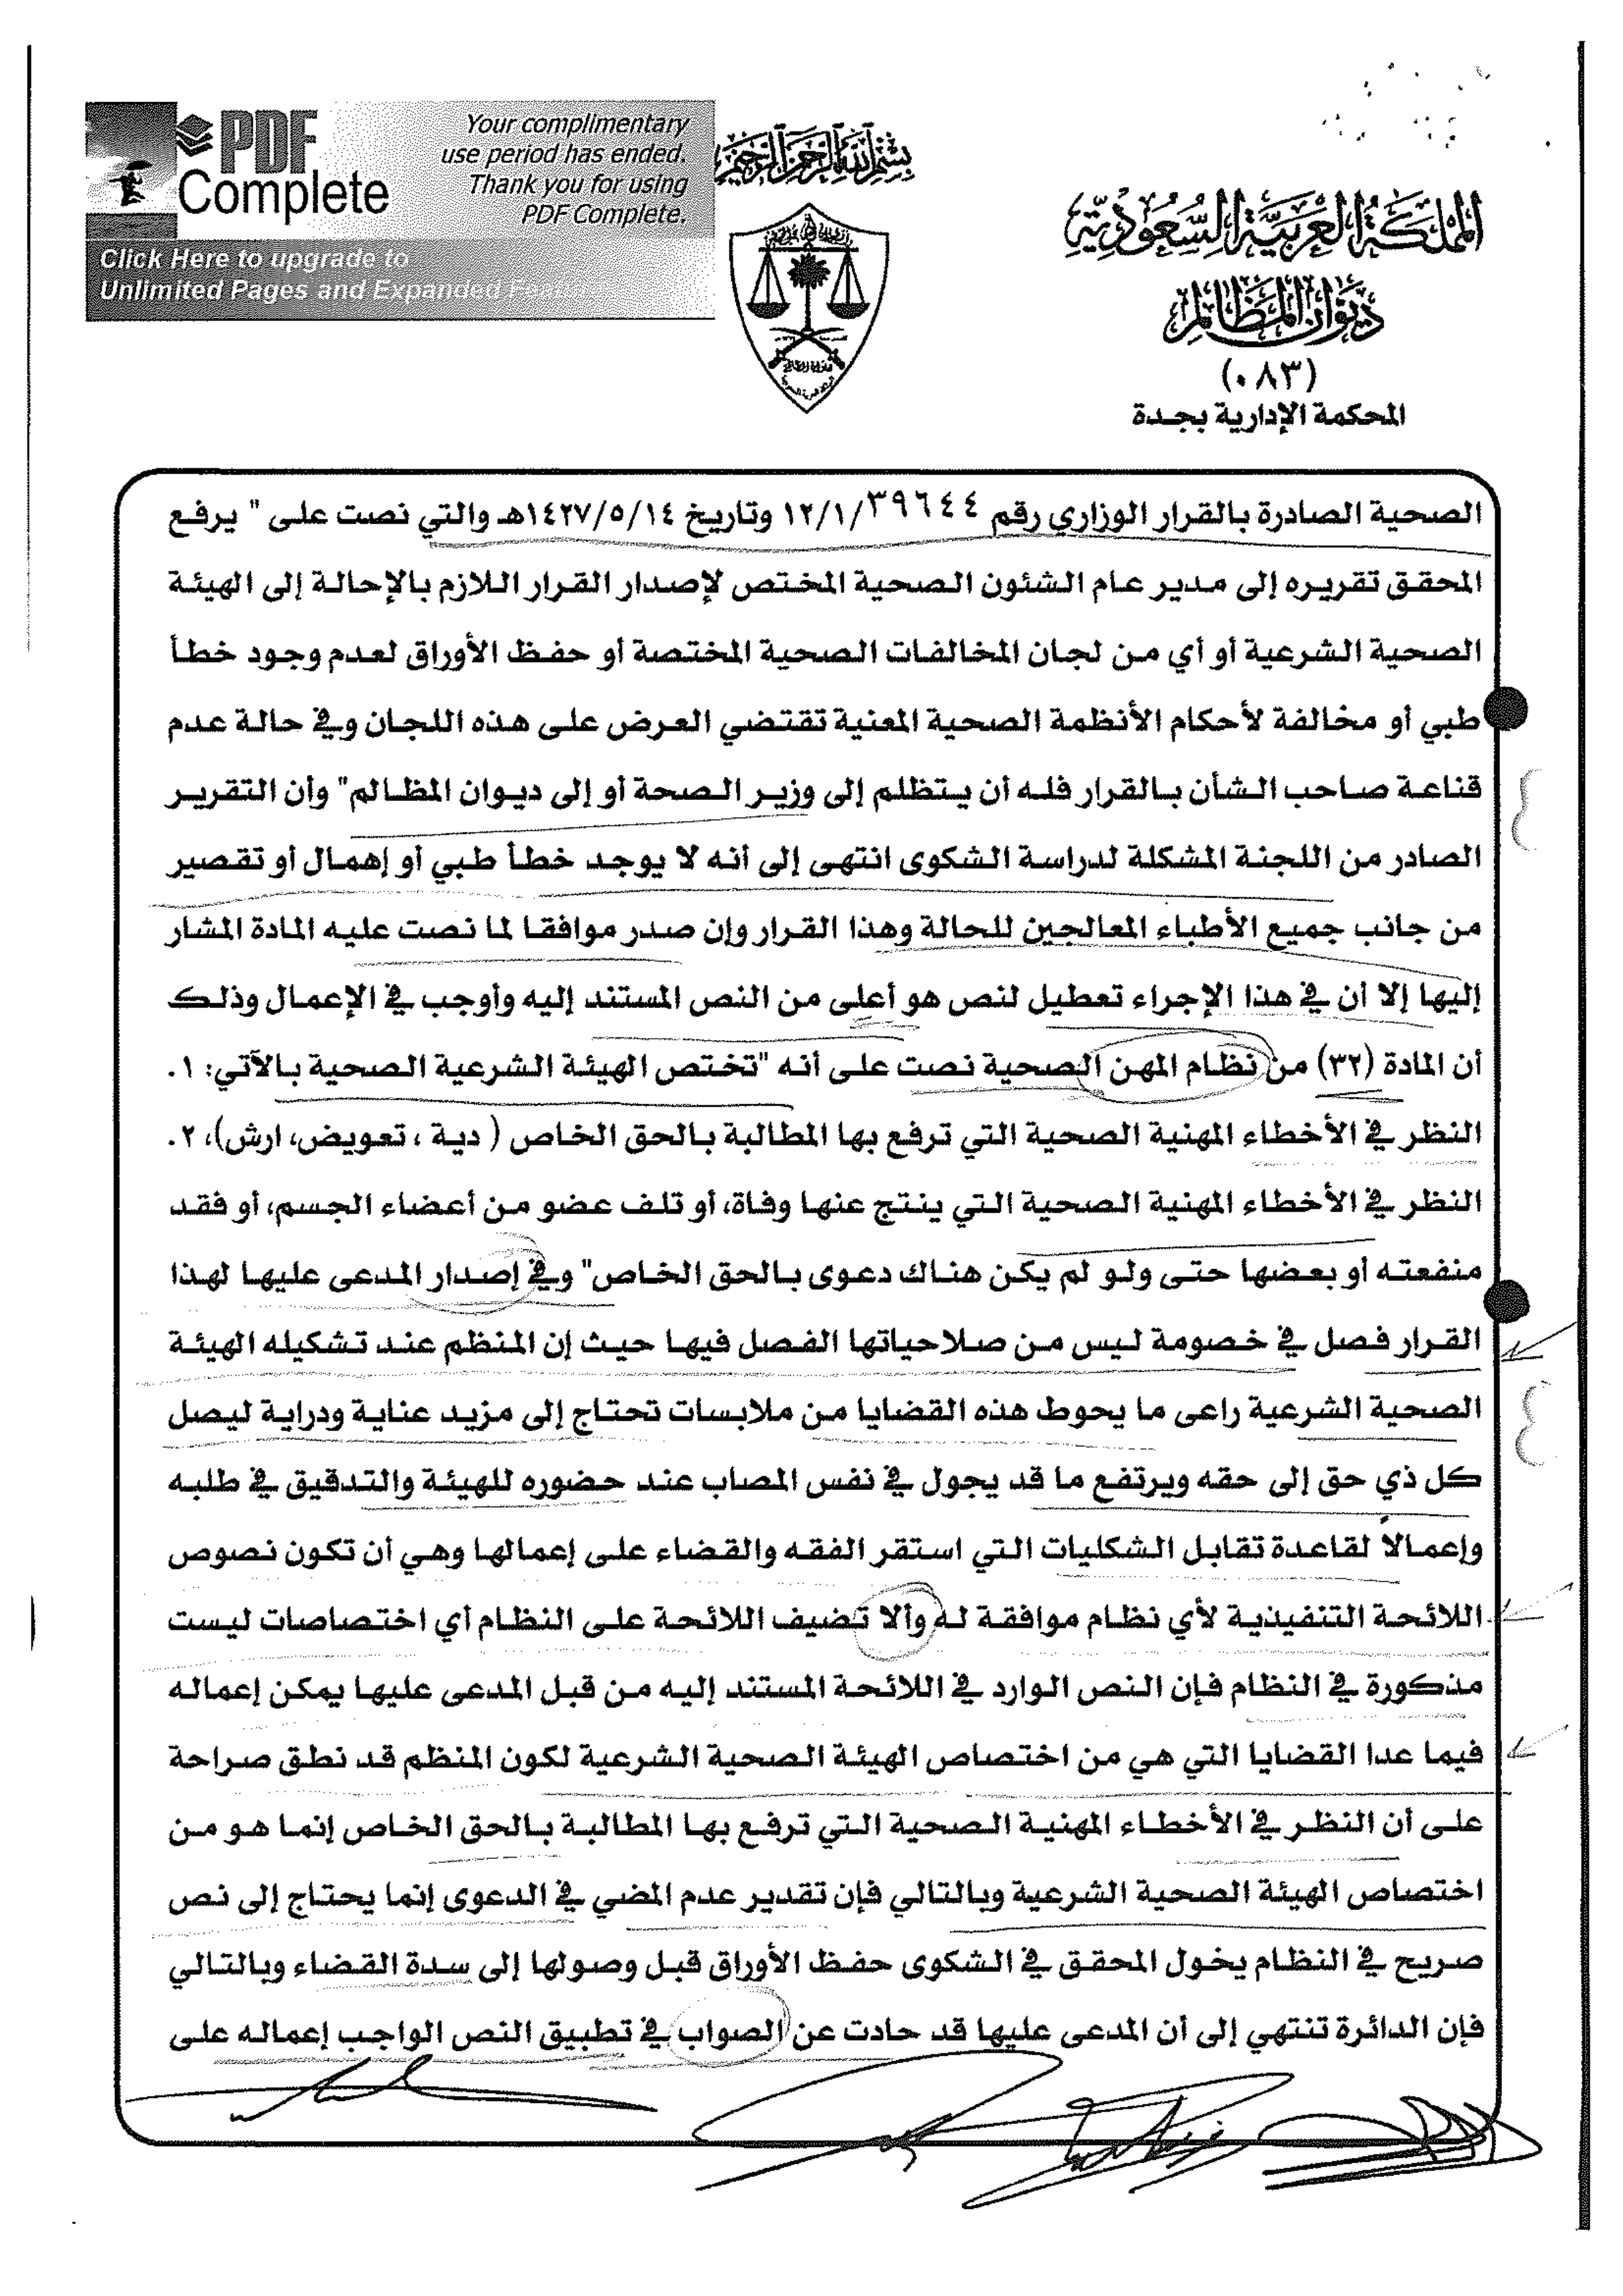 PDF Complete
Your complimentary
use period has ended.
Thank you for using
PDF Complete.
Click Here to upgrade to
Unlimited Pages and Expanded
بسم الله الرحمن الرحيم
المملكة العربية السعودية
ديوان المظالم
(٠٨٣)
المحكمة الإدارية بجدة
الصحية الصادرة بالقرار الوزاري رقم ١٢/١/٣٩٦٤٤ وتاريخ ١٤٢٧/٥/١٤هـ والتي نصت على " يرفع
المحقق تقريره إلى مدير عام الشئون الصحية المختص لإصدار القرار اللازم بالإحالة إلى الهيئة
الصحية الشرعية أو أي من لجان المخالفات الصحية المختصة أو حفظ الأوراق لعدم وجود خطأ
طبي أو مخالفة لأحكام الأنظمة الصحية المعنية تقتضي العرض على هذه اللجان وفي حالة عدم
قناعة صاحب الشأن بالقرار فله أن يتظلم إلى وزير الصحة أو إلى ديوان المظالم" وأن التقرير
الصادر من اللجنة المشكلة لدراسة الشكوى انتهى إلى أنه لا يوجد خطأ طبي أو إهمال أو تقصير
من جانب جميع الأطباء المعالجين للحالة وهذا القرار وإن صدر موافقا لما نصت عليه المادة المشار
إليها إلا أن في هذا الإجراء تعطيل لنص هو أعلى من النص المستند إليه وأوجب في الإعمال وذلك
أن المادة (٣٢) من نظام المهن الصحية نصت على أنه "تختص الهيئة الشرعية الصحية بالآتي: ١.
النظر في الأخطاء المهنية الصحية التي ترفع بها المطالبة بالحق الخاص ( دية ، تعويض، ارش)، ٢.
النظر في الأخطاء المهنية الصحية التي ينتج عنها وفاة، أو تلف عضو من أعضاء الجسم، أو فقد
منفعته أو بعضها حتى ولو لم يكن هناك دعوى بالحق الخاص" وفي إصدار المدعى عليها لهذا
القرار فصل في خصومة ليس من صلاحياتها الفصل فيها حيث إن المنظم عند تشكيله الهيئة
الصحية الشرعية راعى ما يحوط هذه القضايا من ملابسات تحتاج إلى مزيد عناية ودراية ليصل
كل ذي حق إلى حقه ويرتفع ما قد يجول في نفس المصاب عند حضوره للهيئة والتدقيق في طلبه
وإعمالاً لقاعدة تقابل الشكليات التي استقر الفقه والقضاء على إعمالها وهي أن تكون نصوص
اللائحة التنفيذية لأي نظام موافقة له وألا تضيف اللائحة على النظام أي اختصاصات ليست
مذكورة في النظام فإن النص الوارد في اللائحة المستند إليه من قبل المدعى عليها يمكن إعماله
فيما عدا القضايا التي هي من اختصاص الهيئة الصحية الشرعية لكون المنظم قد نطق صراحة
على أن النظر في الأخطاء المهنية الصحية التي ترفع بها المطالبة بالحق الخاص إنما هو من
اختصاص الهيئة الصحية الشرعية وبالتالي فإن تقدير عدم المضي في الدعوى إنما يحتاج إلى نص
صريح في النظام يخول المحقق في الشكوى حفظ الأوراق قبل وصولها إلى سدة القضاء وبالتالي
فإن الدائرة تنتهي إلى أن المدعى عليها قد حادت عن الصواب في تطبيق النص الواجب إعماله على